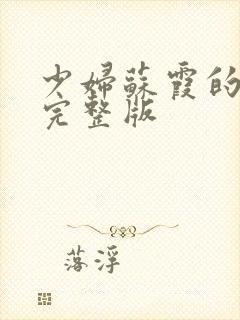 少婦蘇霞的
完整版
落浮